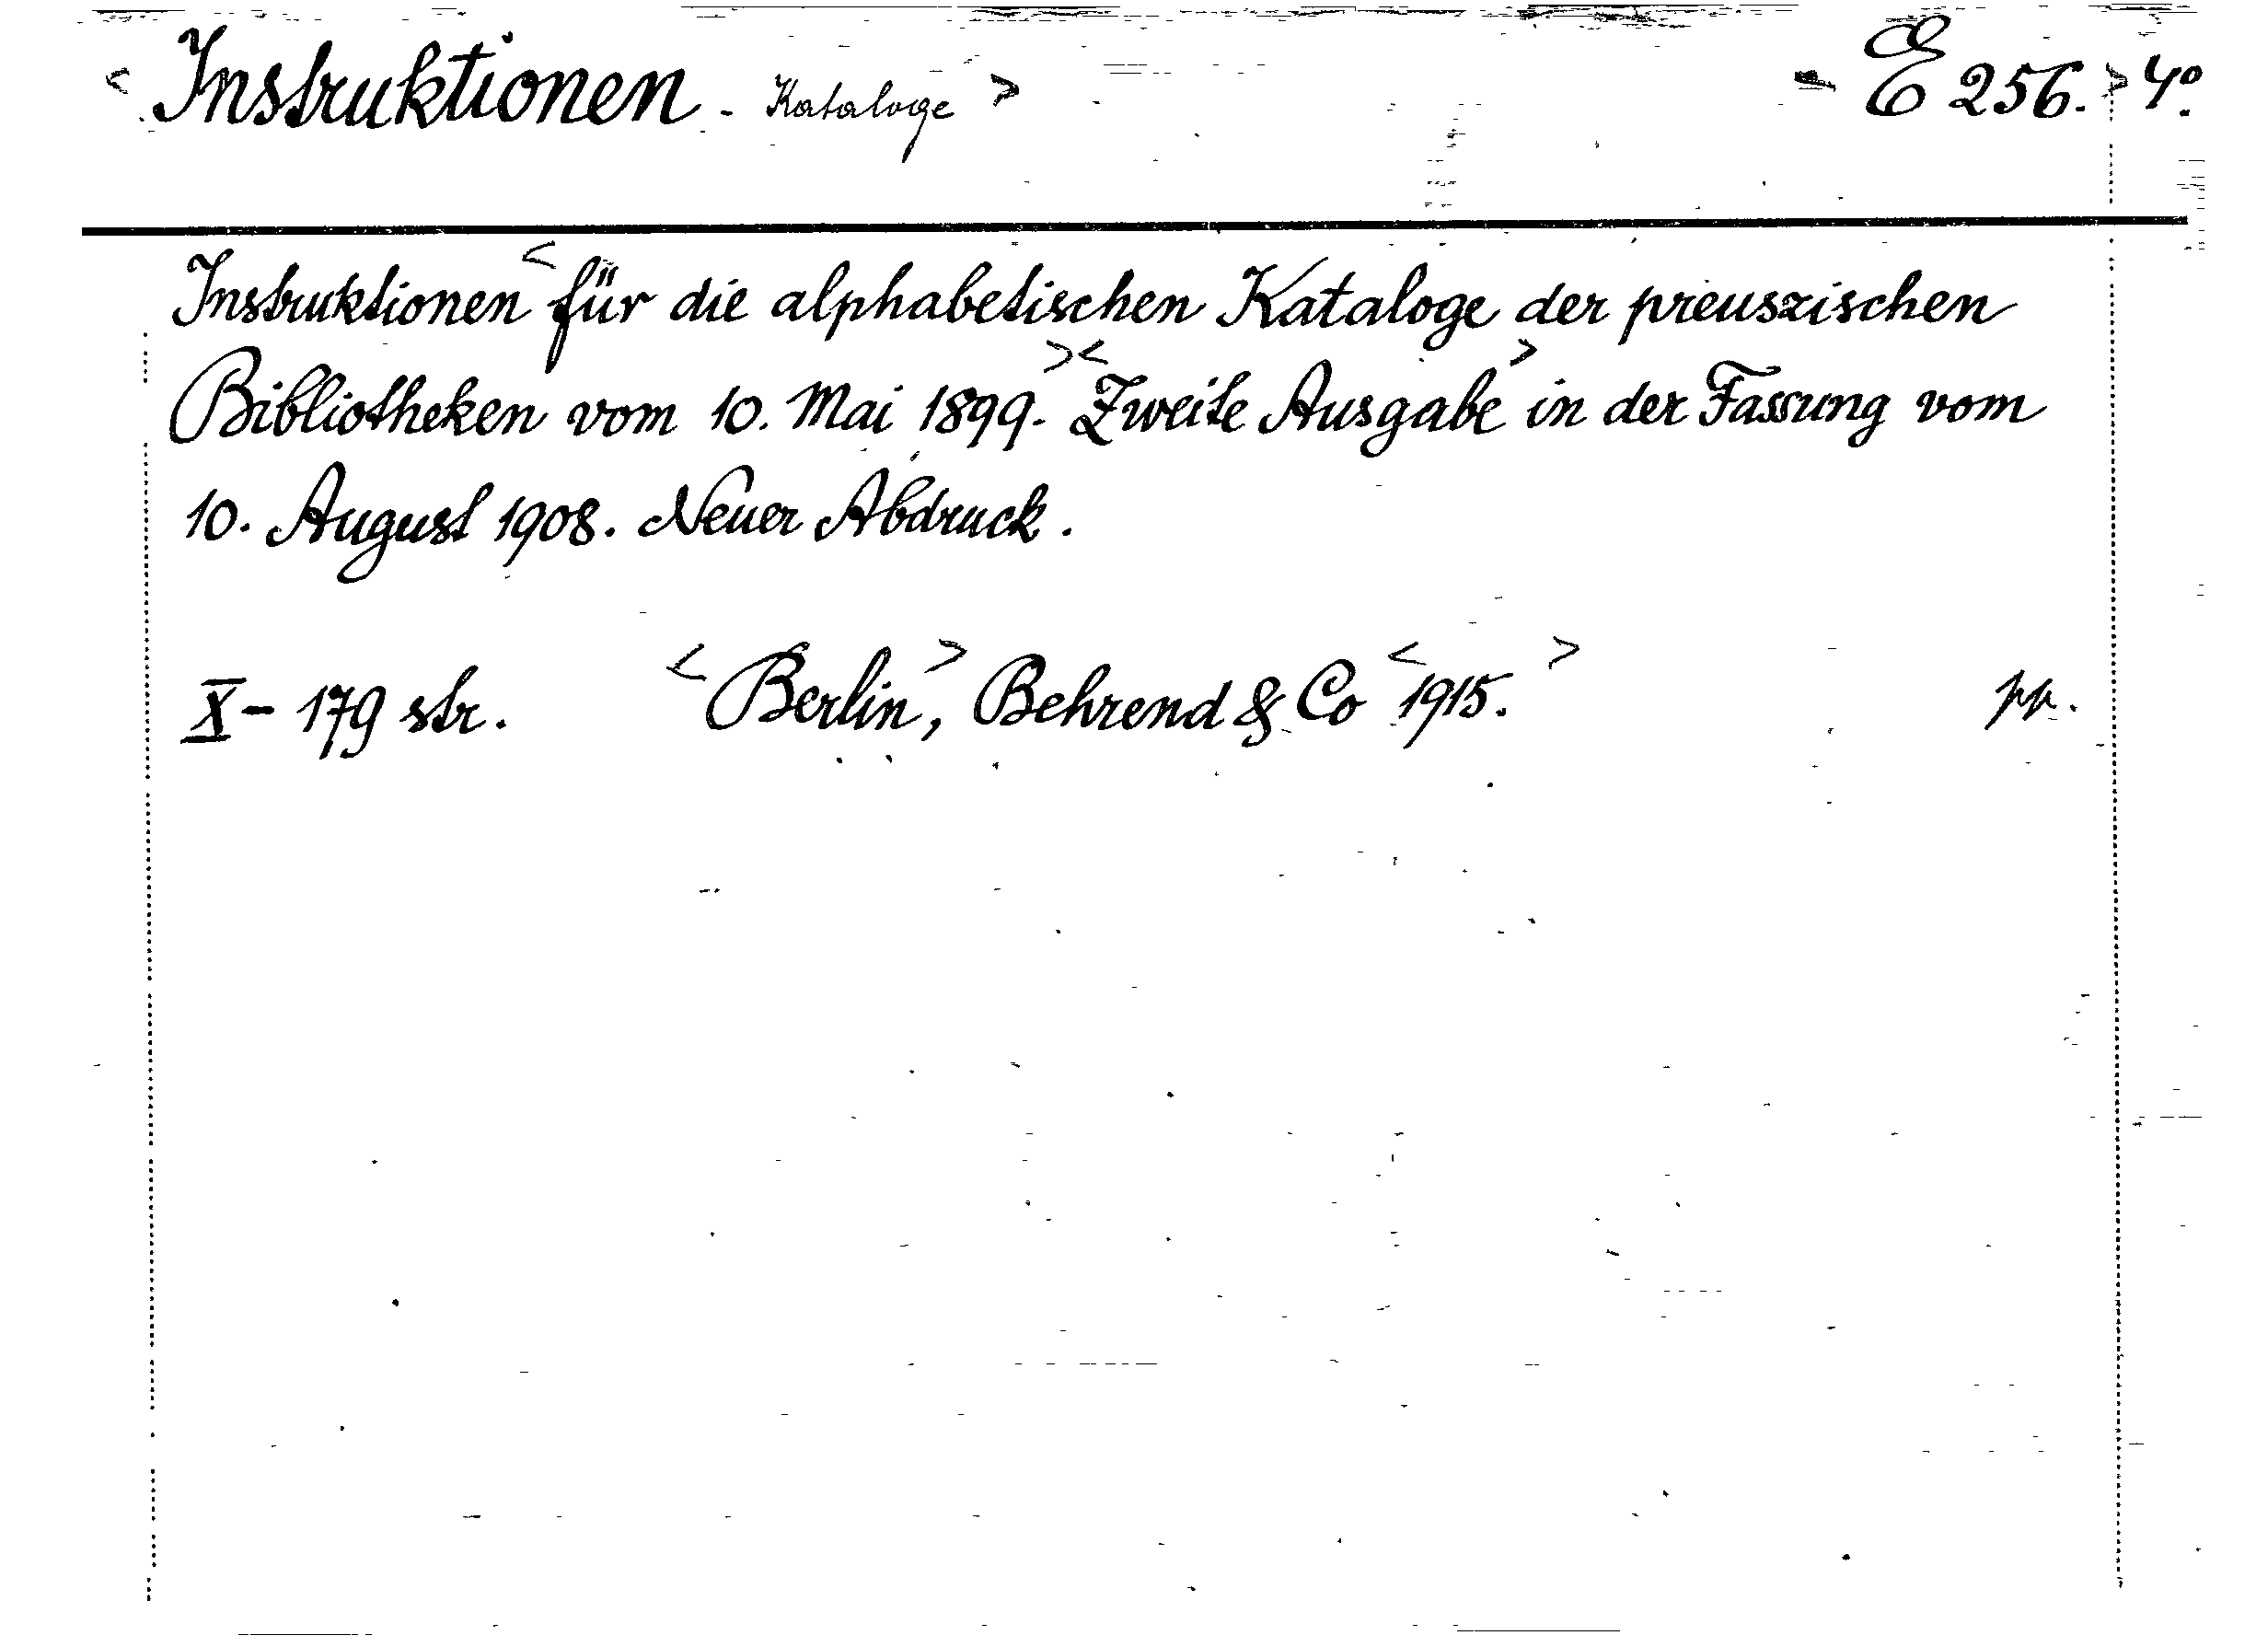 < Instruktionen - Kataloge > - E 256. > 4º.
Instruktionen < für die alphabetischen Kataloge der preuszischen
Bibliotheken vom 10. Mai 1899. > < Zweite Ausgabe > in der Fassung vom
10. August 1908. Neuer Abdruck.
X - 179 str. < Berlin, > Behrend & Co < 1915. > pp.